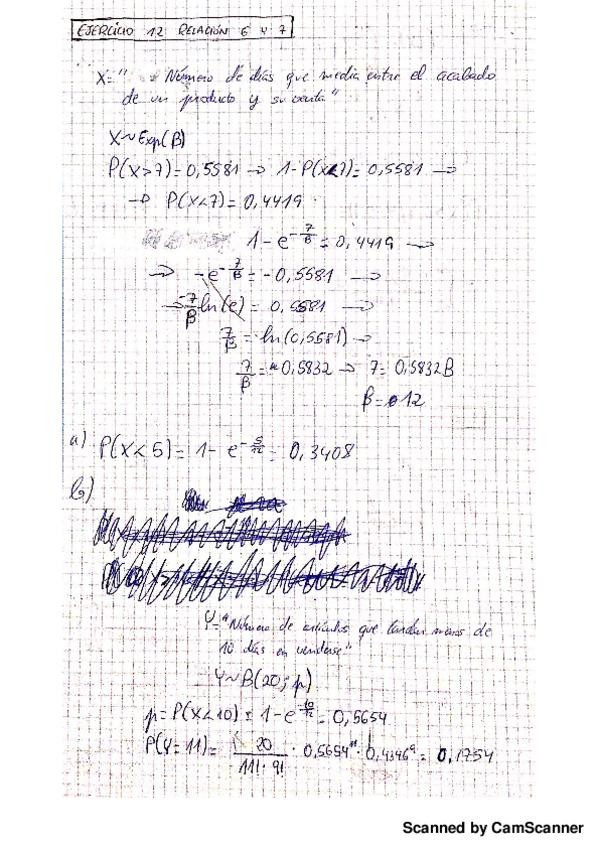 EJERCICIO 12 RELACIÓN 6 Y 7
X = " Número de días que media entre el acabado
de un producto y su venta"
X ~ Exp(β)
P(X>7) = 0,5581 → 1 - P(X<7) = 0,5581 →
→ P(X<7) = 0,4419
1 - e^(-7/β) = 0,4419 →
→ -e^(-7/β) = -0,5581 →
→ -7/β ln(e) = 0,5581 →
7/β = ln(0,5581) →
7/β = 0,5832 → 7 = 0,5832β
β = 12
a) P(X<5) = 1 - e^(-5/12) = 0,3408
b)
Y = "Número de artículos que tardan menos de
10 días en venderse"
Y ~ B(20; p)
p = P(X<10) = 1 - e^(-10/12) = 0,5654
P(Y=11) = 20/(11! · 9!) · 0,5654^11 · 0,4346^9 = 0,1754
Scanned by CamScanner